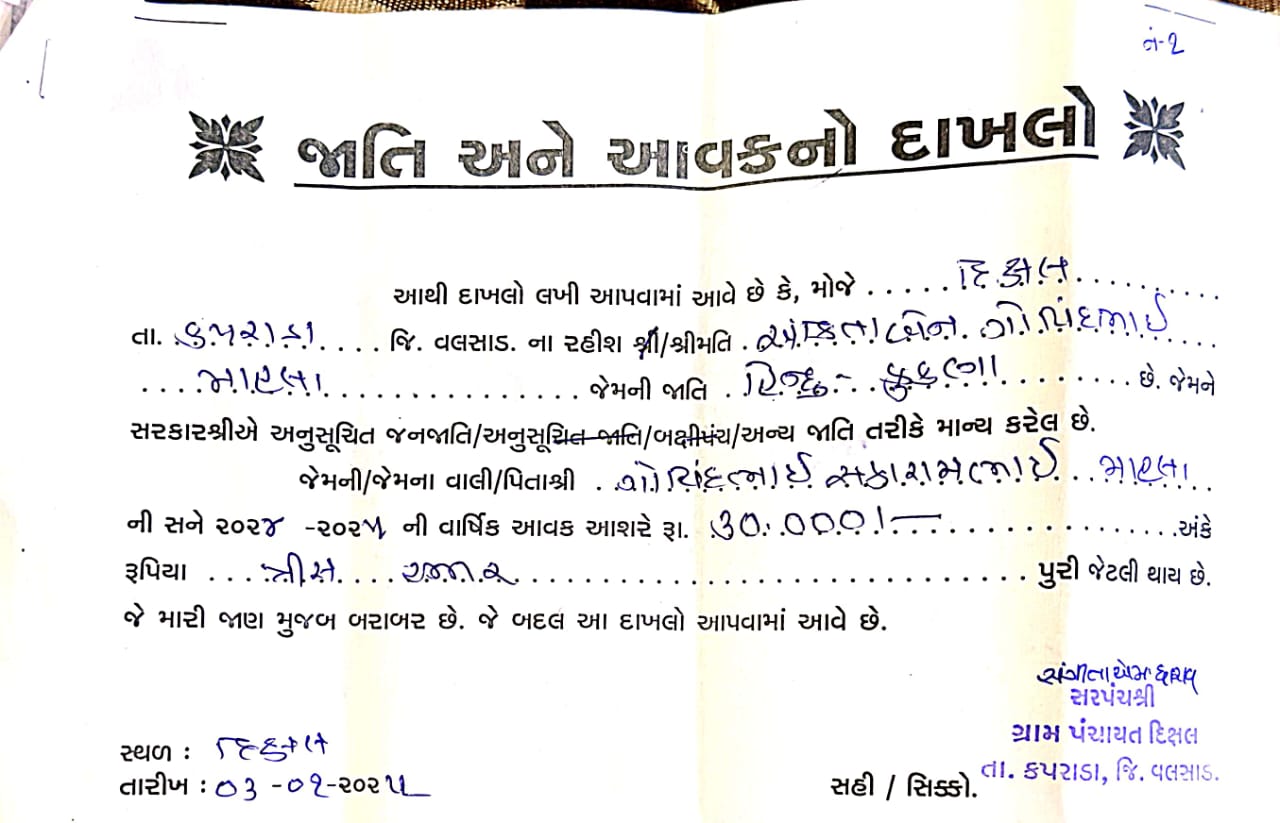 નં-૨
જાતિ અને આવકનો દાખલો
આથી દાખલો લખી આપવામાં આવે છે કે, મોજે ..... દિક્ષલ
તા. કપરાડા .... જિ. વલસાડ. ના રહીશ શ્રી/શ્રીમતિ . અંકિતાબેન ગોવિંદભાઈ
.... માહલા ............... જેમની જાતિ . હિન્દુ - કુકણા ........ છે. જેમને
સરકારશ્રીએ અનુસૂચિત જનજાતિ/અનુસૂચિત જાતિ/બક્ષીપંચ/અન્ય જાતિ તરીકે માન્ય કરેલ છે.
જેમની/જેમના વાલી/પિતાશ્રી . ગોવિંદભાઈ સકારામભાઈ .. માહલા
ની સને ૨૦૨૪ -૨૦૨૫ ની વાર્ષિક આવક આશરે રૂા. ૩૦.૦૦૦/- ............. અંકે
રૂપિયા ... ત્રીસ .... હજાર .............................. પુરી જેટલી થાય છે.
જે મારી જાણ મુજબ બરાબર છે. જે બદલ આ દાખલો આપવામાં આવે છે.
સંગીતા એમ
સરપંચશ્રી
ગ્રામ પંચાયત દિક્ષલ
તા. કપરાડા, જિ. વલસાડ.
સ્થળ : દિક્ષલ
તારીખ : ૦૩ -૦૧-૨૦૨૫
સહી / સિક્કો.